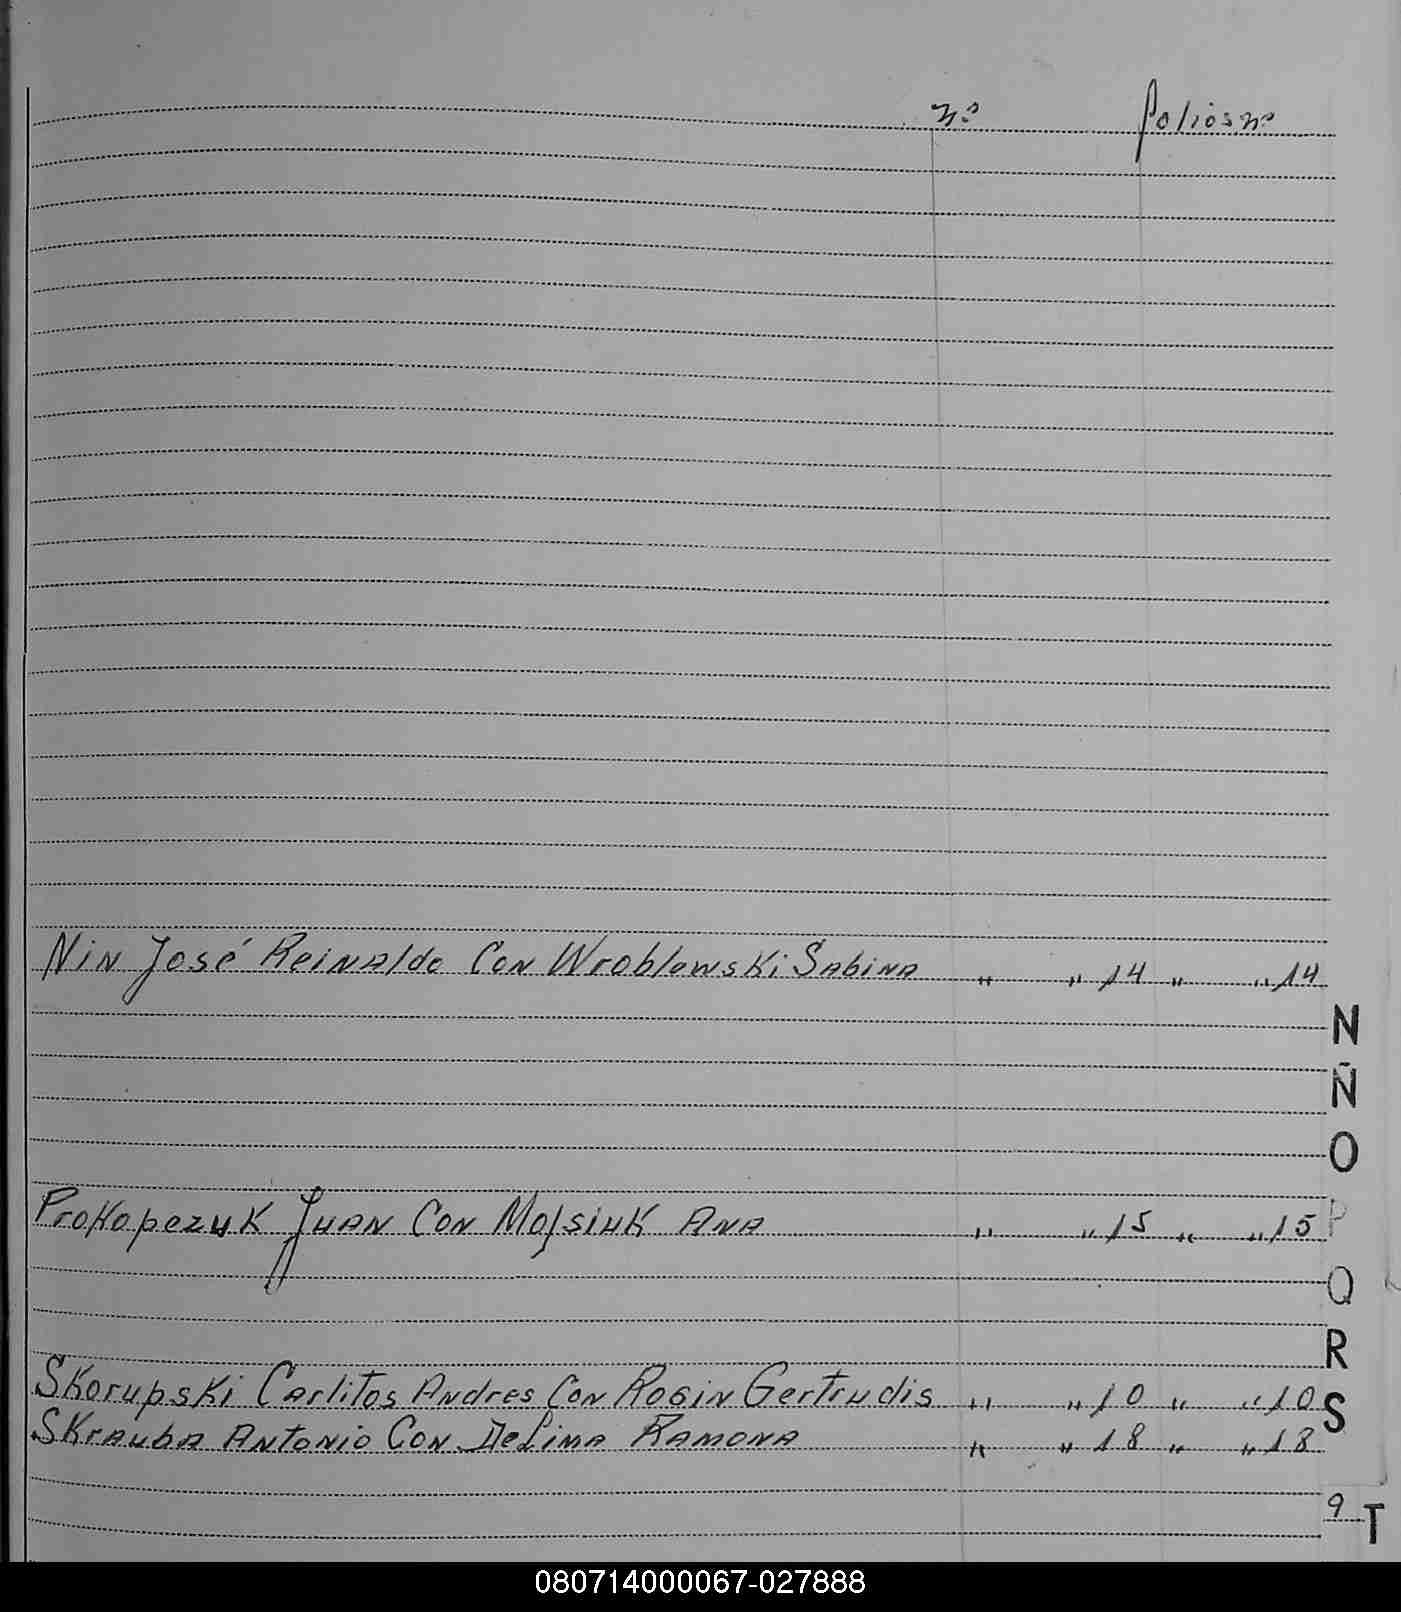 nº folios nº
Nin José Reinaldo Con Wroblewski Sabina " " 14 " " 14
N
Ñ
O
Prokopezuk Juan Con Mojsiuk Ana " " 15 " " 15 P
Q
R
Skorupski Carlitos Andres Con Rosin Gertrudis " " 10 " " 10 S
Skrauba Antonio Con DeLima Ramona " " 18 " " 18
9 T
080714000067-027888